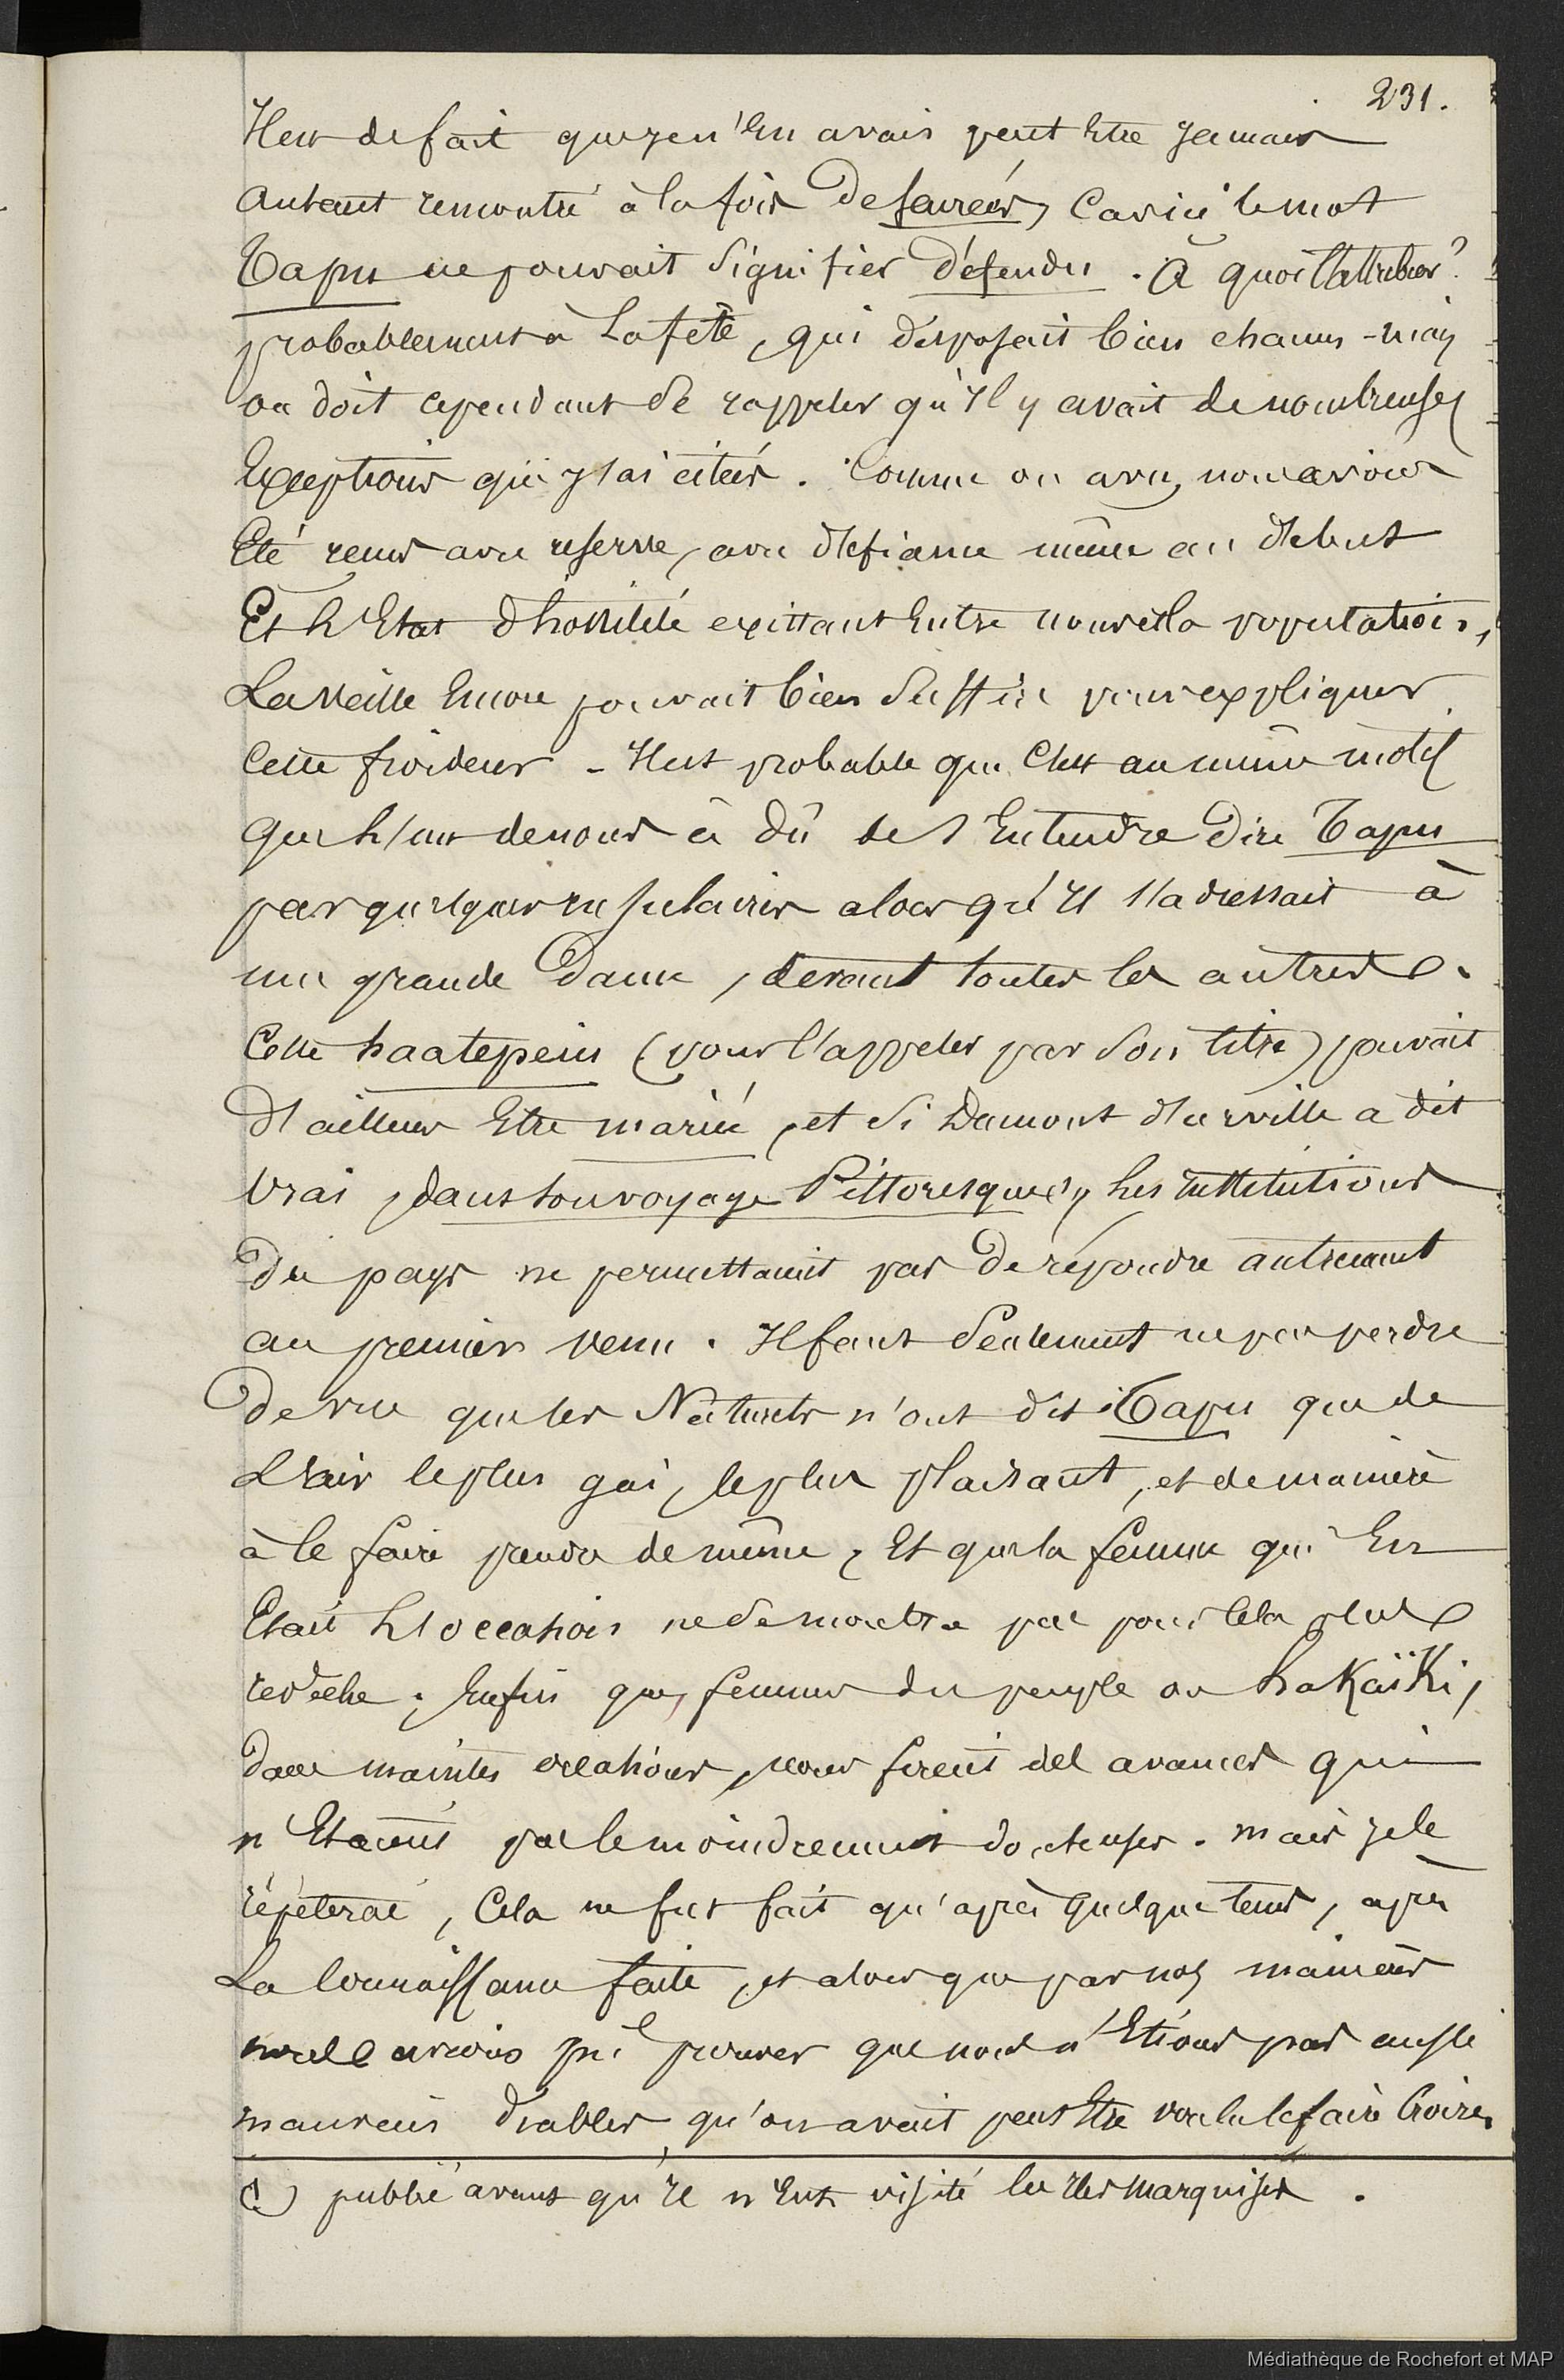 231.
Il est de fait que je n'en avais peut être jamais
autant rencontré à la fois de sacrées, car ici le mot
Tapu ne pouvait signifier défendu. à quoi l'attribuer?
probablement à la fête, qui disposait bien chacun - mais
on doit cependant se rappeler qu'il y avait de nombreuses
exceptions que j'ai citées. Comme on a vu, nous avions
été reçus avec réserve, avec défiance même au début
Et l'état d'hostilité existant entre nous et la population,
La veille encore pouvait bien suffire pour expliquer
cette froideur - Il est probable que c'est au même motif
que l'un de nous a dû de s'entendre dire Tapu
par quelques insulaires alors qu'il s'adressait à
une grande Dame, devant toutes les autres.
Cette haatepeiu (pour l'appeler par son titre) pouvait
d'ailleurs être mariée, et si Dumont d'urville a dit
vrai, dans son voyage Pittoresque (1), les institutions
du pays ne permettaient pas de répondre autrement
au premier venu. Il faut seulement ne pas perdre
de vue que les Naturels n'ont dit Tapu que de
L'air le plus gai, le plus plaisant, et de manière
à le faire prendre de même, Et que la femme qui en
était l'occasion ne se montra pas pour cela plus
revêche. Enfin que, femmes du peuple ou hakaïKi,
dans maintes occasions, nous firent des avances qui
n'étaient pas le moindrement douteuses. mais je le
répéterai, Cela ne fut fait qu'après quelque tems, après
La connaissance faite, et alors que par nos manières
nous avions pu prouver que nous n'étions pas aussi
mauvais diables qu'on avait peut être voulu le faire croire.
(1) publié avant qu'il n'eut visité les Iles Marquises.
Médiathèque de Rochefort et MAP